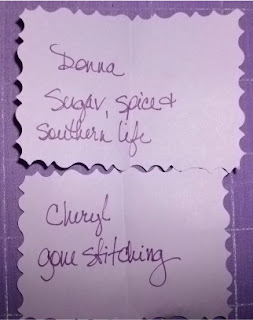 Donna
Sugar, spice &
Southern life
Cheryl
gone stitching